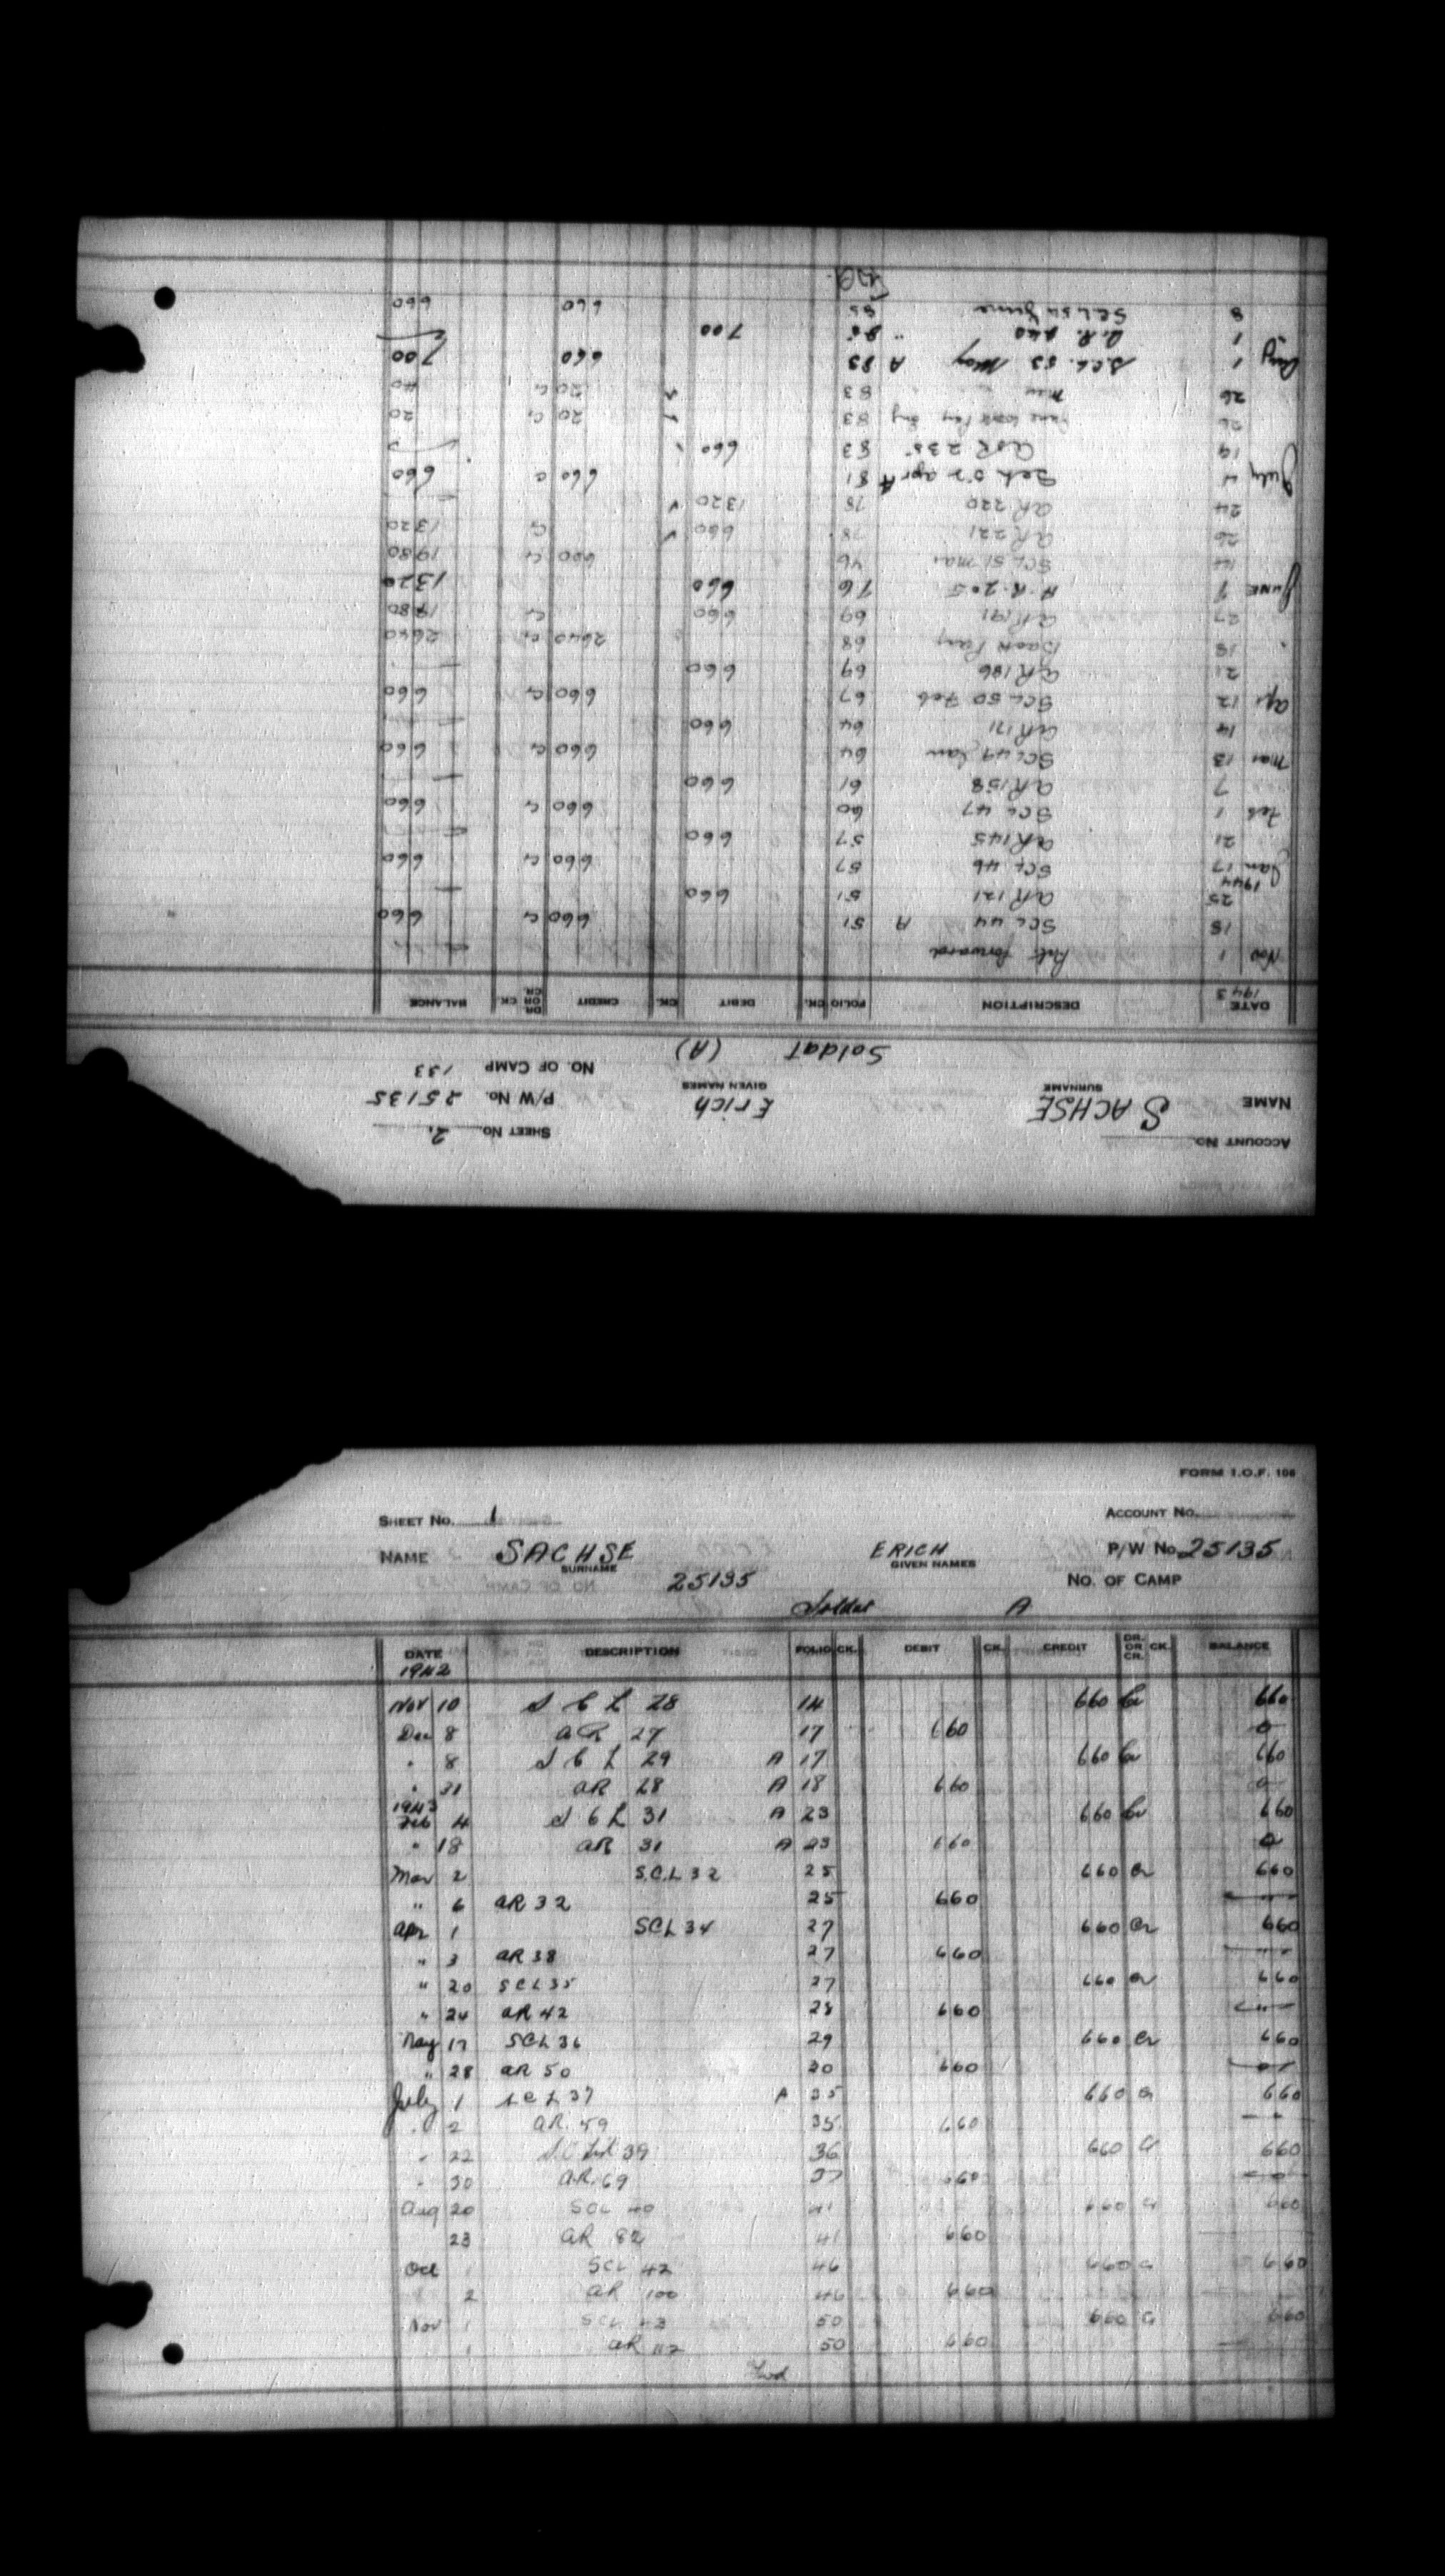 FORM I.O.F. 108
SHEET No. 1 ACCOUNT No.
NAME SACHSE ERICH P/W No. 25135
SURNAME GIVEN NAMES
25135 NO. OF CAMP
Soldat A
DATE DESCRIPTION FOLIO CK. DEBIT CK. CREDIT DR. OR CR. CK. BALANCE
1942
Nov 10 S C L 28 14 660 Cr 660
Dec 8 AR 27 17 660 0
" 8 S C L 29 A 17 660 Cr 660
" 31 AR 28 A 18 660 0
1943
Feb 4 S C L 31 A 23 660 Cr 660
" 18 AR 31 A 23 660 0
Mar 2 S.C.L 32 25 660 Cr 660
" 6 AR 32 25 660
Apr 1 SCL 34 27 660 Cr 660
" 3 AR 38 27 660
" 20 SCL 35 27 660 Cr 660
" 24 AR 42 28 660
May 17 SCL 36 29 660 Cr 660
" 28 AR 50 30 660
July 1 SCL 37 A 35 660 Cr 660
" 2 AR. 59 35 660
" 22 S.C List 39 36 660 Cr 660
" 30 A.R. 69 37 660
Aug 20 SCL 40 41 660 Cr 660
23 AR 82 41 660
Oct 1 SCL 42 46 660 Cr 660
2 AR 100 46 660
Nov 1 SCL 43 50 660 Cr 660
1 AR 112 50 660
Fwd
ACCOUNT No. SHEET No. 2.
NAME SACHSE Erich P/W No. 25135
SURNAME GIVEN NAMES NO. OF CAMP 133
Soldat (A)
DATE DESCRIPTION FOLIO CK. DEBIT CK. CREDIT DR. OR CR. CK. BALANCE
1943
Nov 1 forward
18 SCL 44 A 51 660 Cr 660
25 AR 121 51 660
1944
Jan 17 SCL 46 57 660 Cr 660
21 AR 145 57 660
Feb 1 SCL 47 60 660 Cr 660
7 AR 158 61 660
Mar 13 SCL 49 Jan 64 660 Cr 660
14 AR 171 64 660
Apr 12 SCL 50 Feb 67 660 Cr 660
21 AR 186 69 660
18 Back Pay 68 2640 Cr 2640
27 AR 191 69 660 Cr 1980
June 7 A.R. 205 76 660 1320
14 SCL 51 Mar 76 660 Cr 1980
26 AR 221 78 660 Cr 1320
24 AR 220 78 1320
July 4 Sch 52 Apr A 81 660 Cr 660
19 AR 235 83 660
26 83 20 Cr 20
26 83 20 Cr 40
Aug 1 S.C.L. 53 May A 83 660 700
1 A.R. 240 " 85 700
8 Sch 54 June 85 660 660